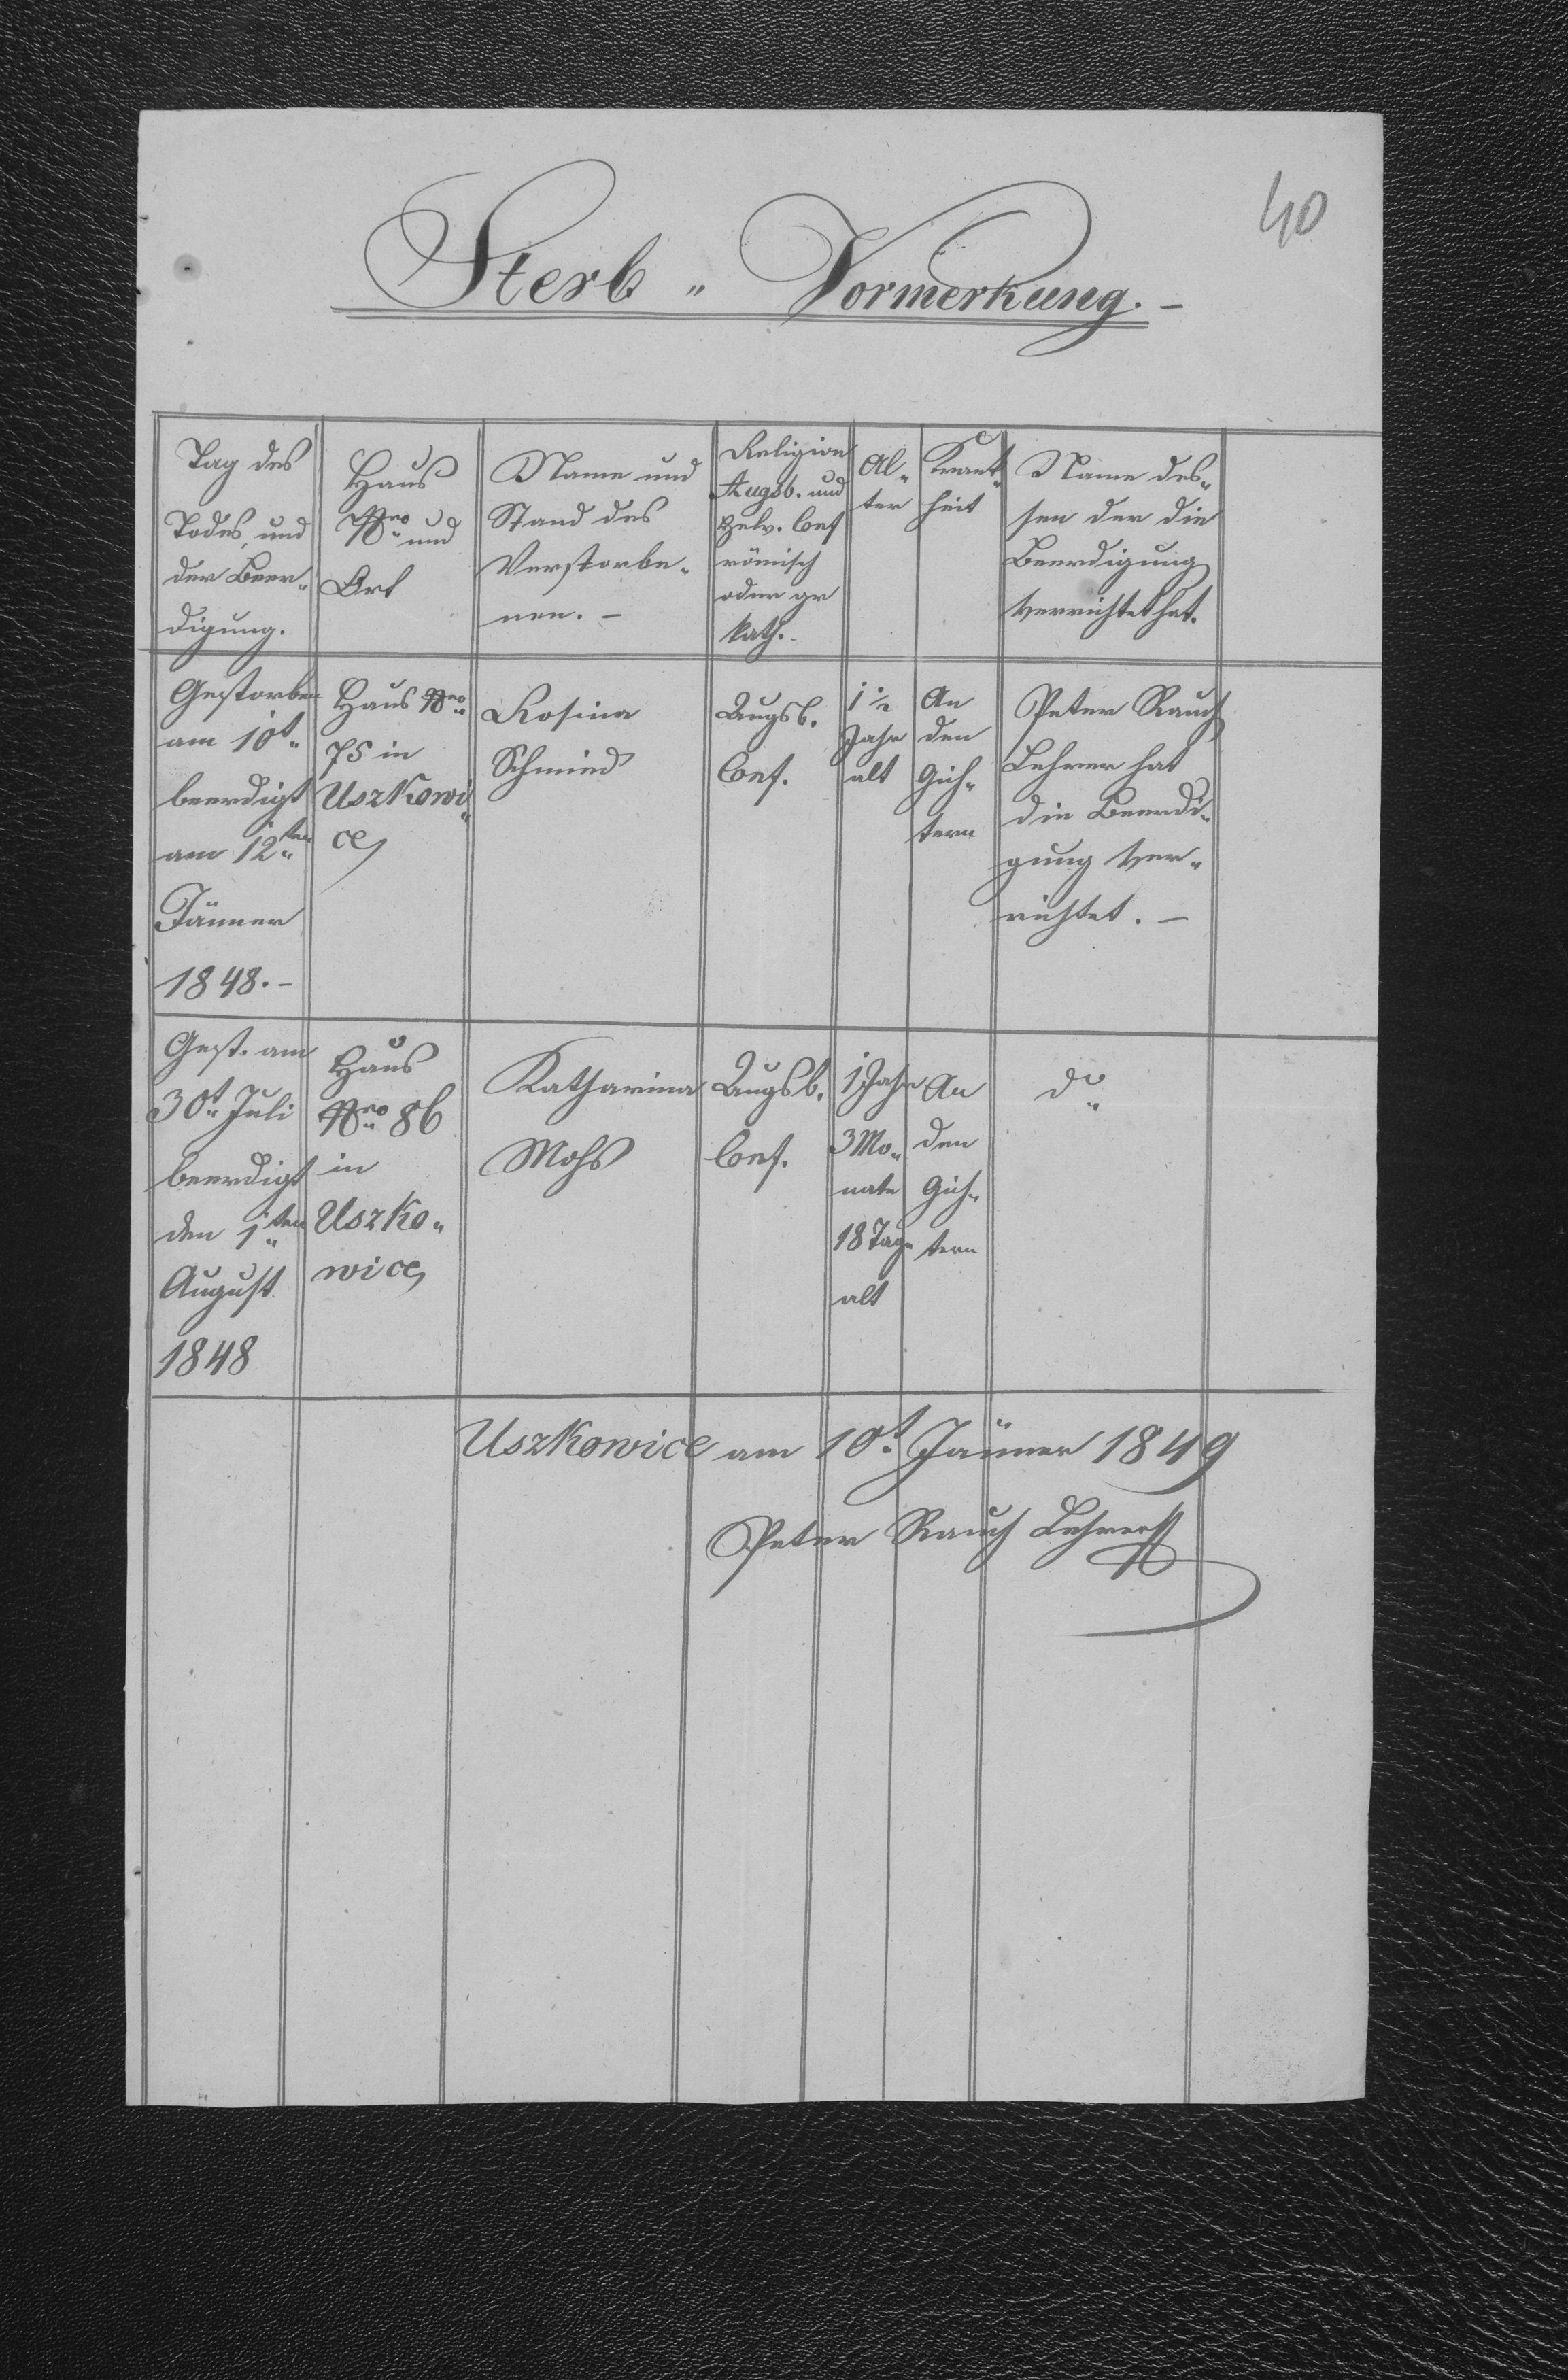 40
Sterb „ Vormerkung. –
Tag des
Todes, und
der Beer„
digung.
Haus
Nro und
Ort
Name und
Stand des
Verstorbe„
nen. –
Religion
Augsb. und
Helv. Conf
römisch
oder gr
kath. –
Al„
ter
Krank„
heit
Name des„
sen der die
Beerdigung
verrichtet hat.
Gestorben
am 10t
beerdigt
am 12ten
Jänner
1848. –
Haus Nro
75 in
Uszkowi„
ce,
Rosina
Schmied
Augsb.
Conf.
1 ½
Jahr
alt
An
den
Gich„
tern
Peter Rauch
Lehrer hat
die Beerdi„
gung ver„
richtet. –
Gest. am
30t Juli
beerdigt
den 1ten
August
1848
Haus
Nro 86
in
Uszko„
wice,
Katharina
Mohs
Augsb.
Conf.
1 Jahr
3 Mo„
nate
18 Tage
alt
An
den
Gich„
tern
do
Uszkowice am 10t Jänner 1849
Peter Rauch Lehrer